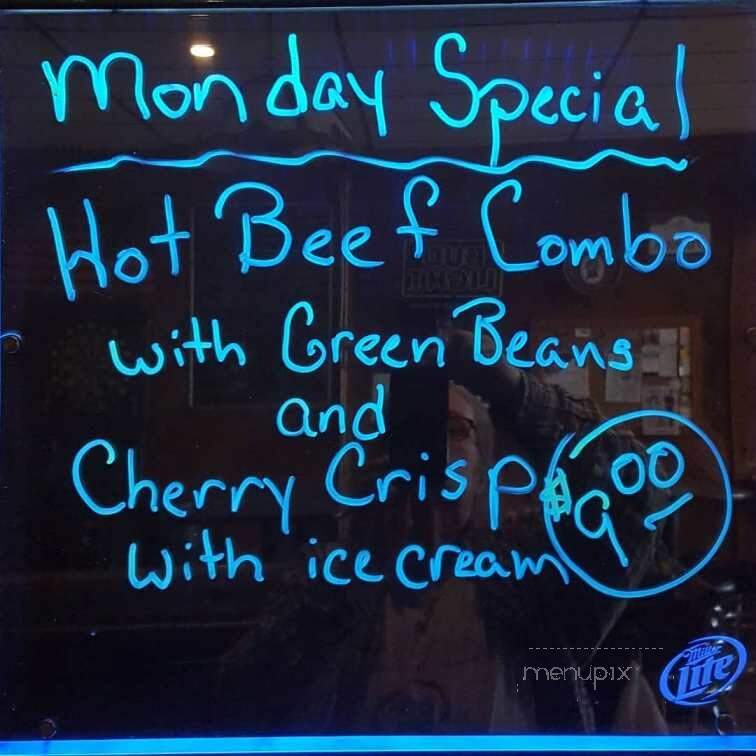 Monday Special
Hot Beef Combo
with Green Beans
and
Cherry Crisp
with ice cream
$9.00
menupix
Miller
Lite